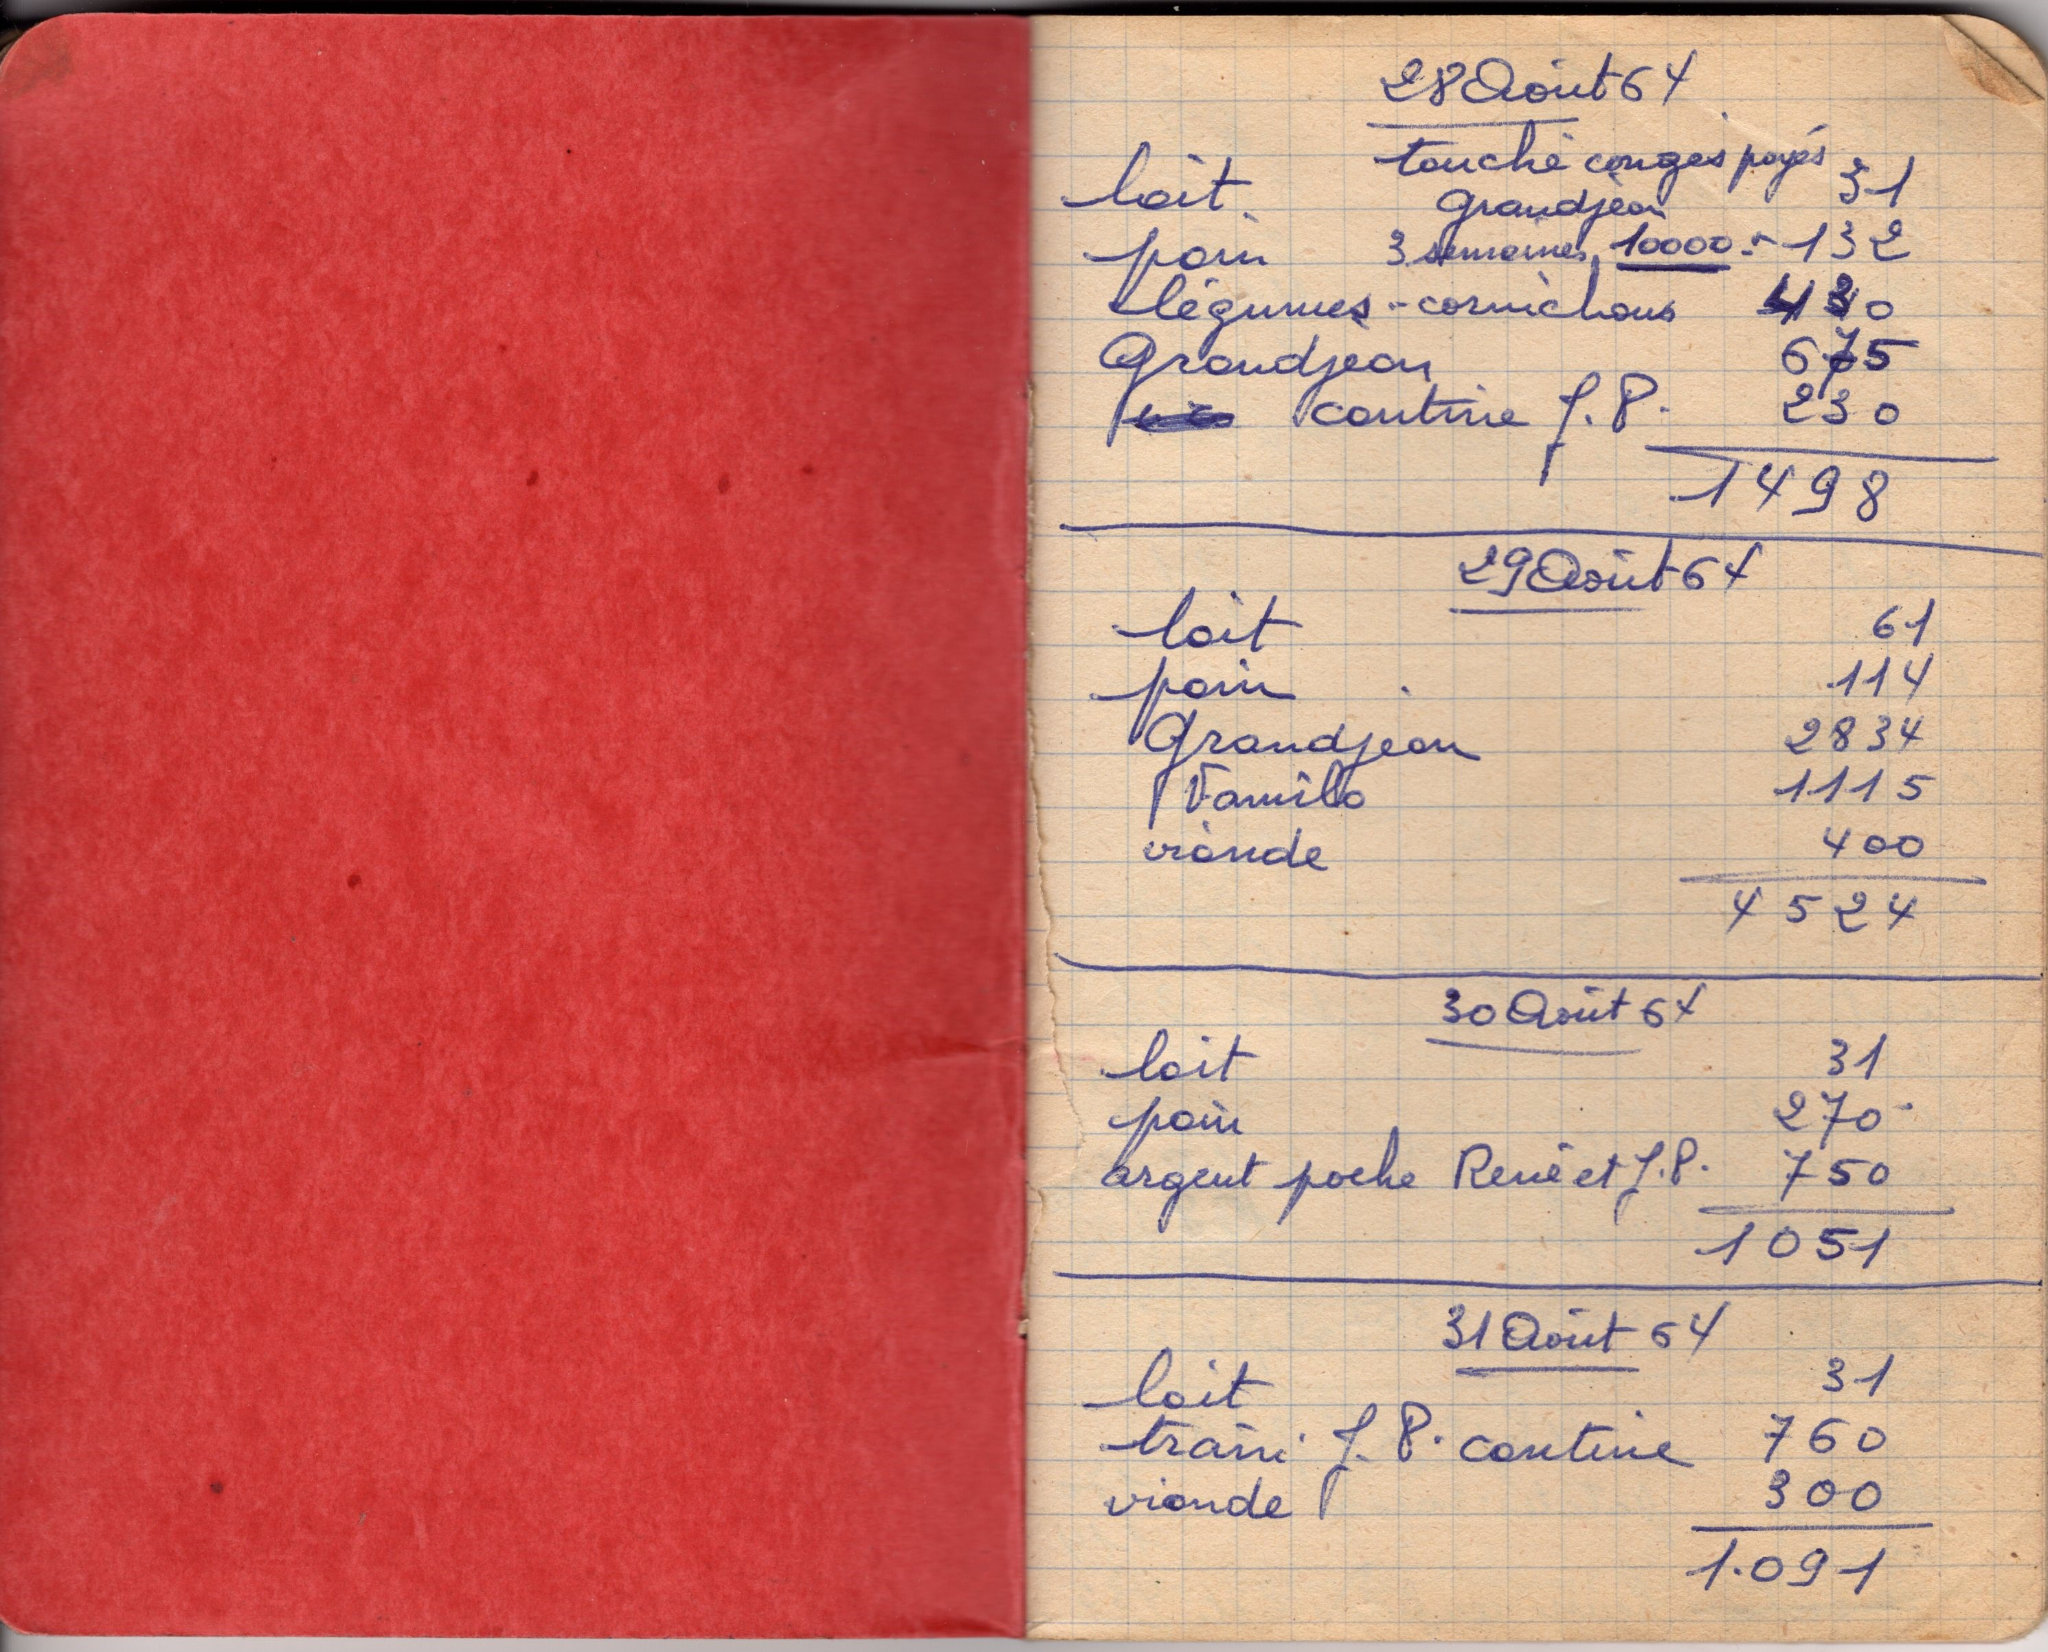 28 Août 64
touché congés payés
lait 31
Grandjean
pain 3 semaines 10000.- 132
légumes - cornichons 430
Grandjean 675
cantine J.P. 230
1498
29 Août 64
lait 61
pain 114
Grandjean 2834
1115
viande 400
4524
30 Août 64
lait 31
pain 270
argent poche René et J.P. 750
1051
31 Août 64
lait 31
train J.P. cantine 760
viande 300
1.091